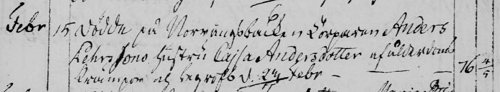 Febr 15 Dödde på Norvångsbacken Torparen Anders
Pehrssons Hustru Cajsa Andersdotter af ålderdoms
krämpor och begrofs d. 24 Febr — 76 4/5